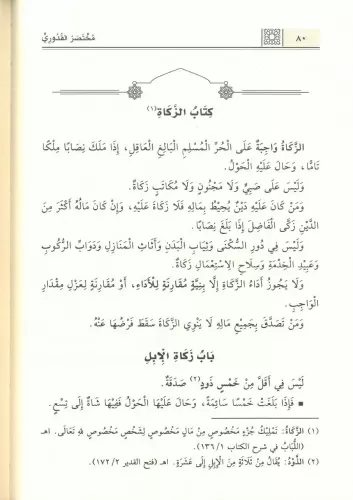 ٨٠
مُخْتَصَرُ القُدُورِيِّ
كِتَابُ الزَّكَاةِ(١)
الزَّكَاةُ وَاجِبَةٌ عَلَى الْحُرِّ الْمُسْلِمِ الْبَالِغِ الْعَاقِلِ، إِذَا مَلَكَ نِصَابًا مِلْكًا
تَامًّا، وَحَالَ عَلَيْهِ الْحَوْلُ.
وَلَيْسَ عَلَى صَبِيٍّ وَلَا مَجْنُونٍ وَلَا مُكَاتَبٍ زَكَاةٌ.
وَمَنْ كَانَ عَلَيْهِ دَيْنٌ يُحِيطُ بِمَالِهِ فَلَا زَكَاةَ عَلَيْهِ، وَإِنْ كَانَ مَالُهُ أَكْثَرَ مِنَ
الدَّيْنِ زَكَّى الْفَاضِلَ إِذَا بَلَغَ نِصَابًا.
وَلَيْسَ فِي دُورِ السُّكْنَى وَثِيَابِ الْبَدَنِ وَأَثَاثِ الْمَنَازِلِ وَدَوَابِّ الرُّكُوبِ
وَعَبِيدِ الْخِدْمَةِ وَسِلَاحِ الِاسْتِعْمَالِ زَكَاةٌ.
وَلَا يَجُوزُ أَدَاءُ الزَّكَاةِ إِلَّا بِنِيَّةٍ مُقَارِنَةٍ لِلْأَدَاءِ، أَوْ مُقَارِنَةٍ لِعَزْلِ مِقْدَارِ
الْوَاجِبِ.
وَمَنْ تَصَدَّقَ بِجَمِيعِ مَالِهِ لَا يَنْوِي الزَّكَاةَ سَقَطَ فَرْضُهَا عَنْهُ.
بَابُ زَكَاةِ الْإِبِلِ
لَيْسَ فِي أَقَلَّ مِنْ خَمْسِ ذَوْدٍ(٢) صَدَقَةٌ.
▪ فَإِذَا بَلَغَتْ خَمْسًا سَائِمَةً، وَحَالَ عَلَيْهَا الْحَوْلُ فَفِيهَا شَاةٌ إِلَى تِسْعٍ.
(١) الزَّكَاةُ: تَمْلِيكُ جُزْءٍ مَخْصُوصٍ مِنْ مَالٍ مَخْصُوصٍ لِشَخْصٍ مَخْصُوصٍ لِلهِ تَعَالَى. اهـ
(اللُّبَابُ في شرح الكتاب ١/ ١٣٦).
(٢) الذَّوْدُ: يُقَالُ مِنْ ثَلَاثَةٍ مِنَ الْإِبِلِ إِلَى عَشَرَةٍ. اهـ (فتح القدير ٢/ ١٧٢).